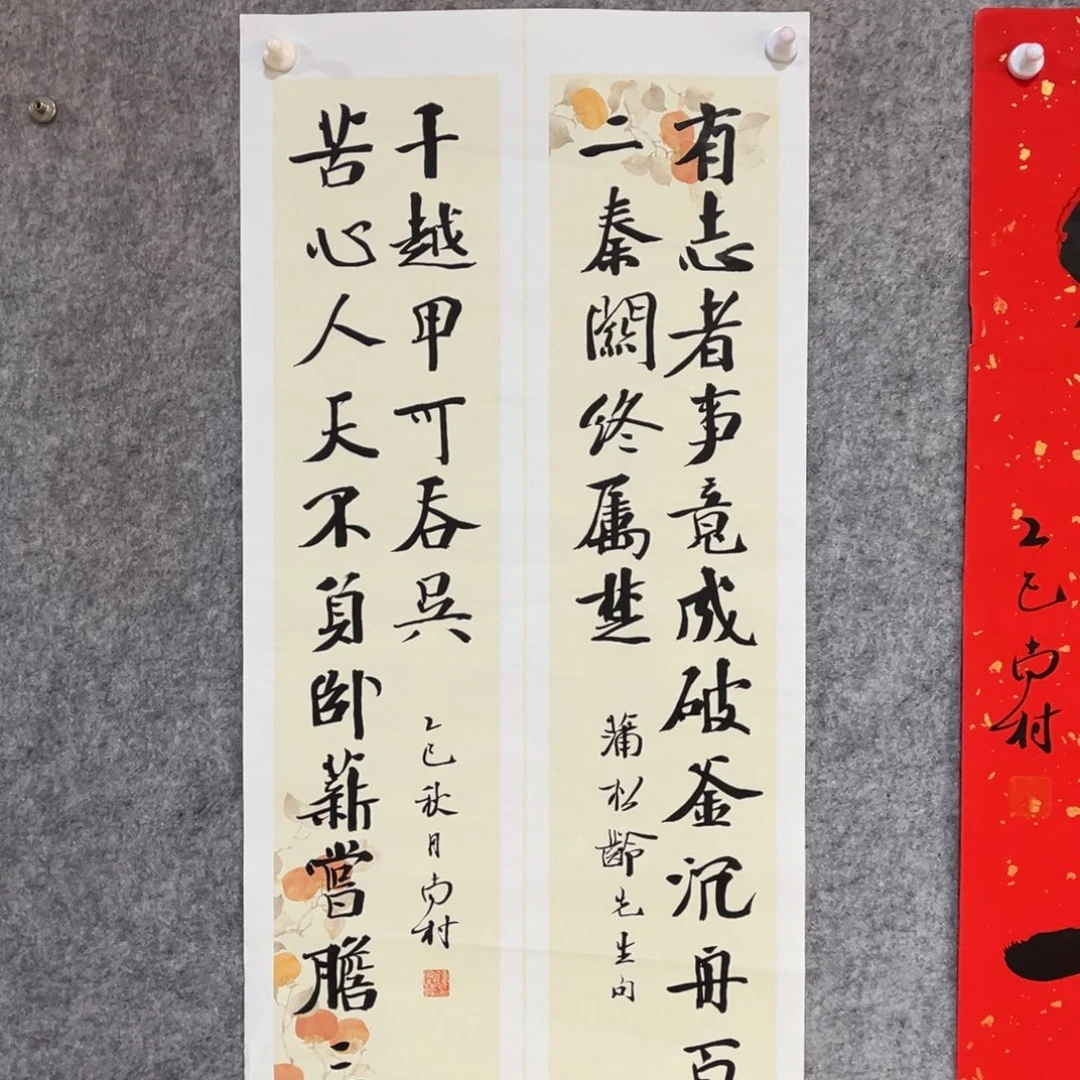 有志者事竟成破釜沉舟百
二秦關终属楚
蒲松齡先生句
苦心人天不負卧薪嘗膽三
千越甲可吞吴
乙巳秋月尚村
乙巳尚村